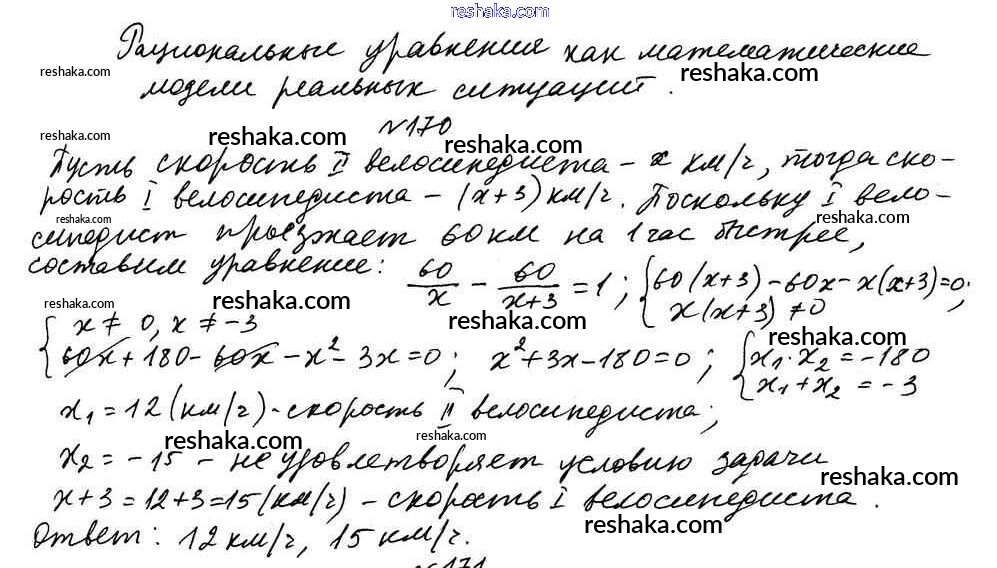 reshaka.com
Рациональные уравнения как математические
reshaka.com
reshaka.com
модели реальных ситуаций.
№170
reshaka.com
reshaka.com
reshaka.com
Пусть скорость II велосипедиста – x км/ч, тогда ско-
рость I велосипедиста – (x+3) км/ч. Поскольку I вело-
reshaka.com
reshaka.com
reshaka.com
сипедист проезжает 60 км на 1 час быстрее,
составим уравнение: 60/x - 60/(x+3) = 1; { 60(x+3) - 60x - x(x+3) = 0;
x(x+3) ≠ 0
reshaka.com
reshaka.com
reshaka.com
{ x ≠ 0, x ≠ -3
60x + 180 - 60x - x² - 3x = 0; x² + 3x - 180 = 0; { x₁·x₂ = -180
x₁ + x₂ = -3
reshaka.com
x₁ = 12 (км/ч) - скорость II велосипедиста;
reshaka.com
reshaka.com
x₂ = -15 - не удовлетворяет условию задачи
reshaka.com
x+3 = 12+3 = 15 (км/ч) – скорость I велосипедиста.
reshaka.com
Ответ: 12 км/ч, 15 км/ч.
№171